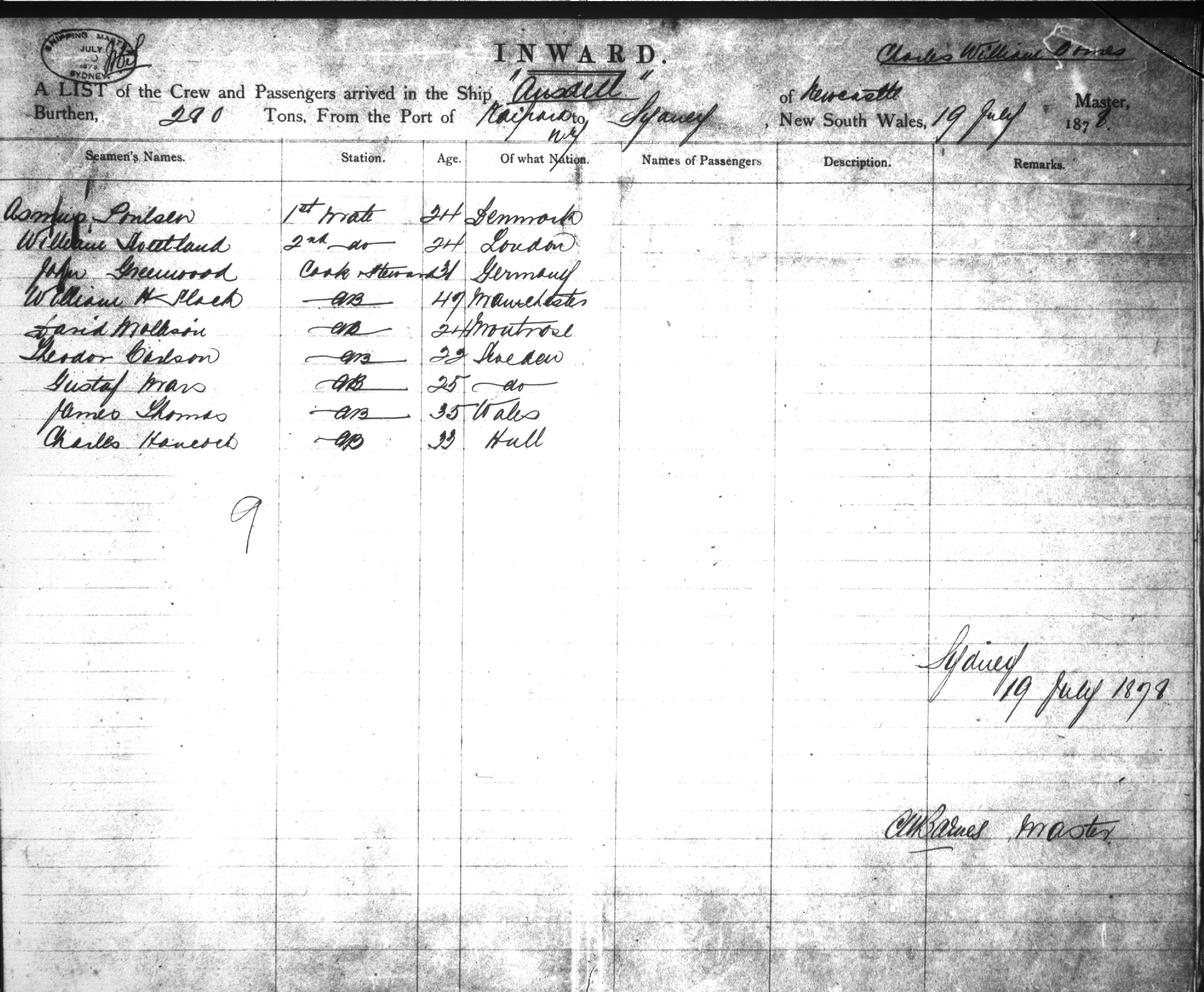 SHIPPING MAST
JULY
1878
SYDNEY
INWARD.
Charles William
A LIST of the Crew and Passengers arrived in the Ship "Ansdell" of Newcastle Master,
Burthen, 280 Tons, From the Port of Kaipara to Sydney, New South Wales, 19 July 1878.
NZ
Seamen's Names. Station. Age. Of what Nation. Names of Passengers Description. Remarks.
Poulsen 1st Mate 24 Denmark
William 2nd do 24 London
John Greenwood Cook & Steward 31 Germany
William H AB 49 Manchester
David AB 24 Montrose
Theodor Carlson AB 22 Sweden
Gustaf AB 25 do
James Thomas AB 35 Wales
Charles Hancock AB 33 Hull
9
Sydney
19 July 1878
CWBarnes Master